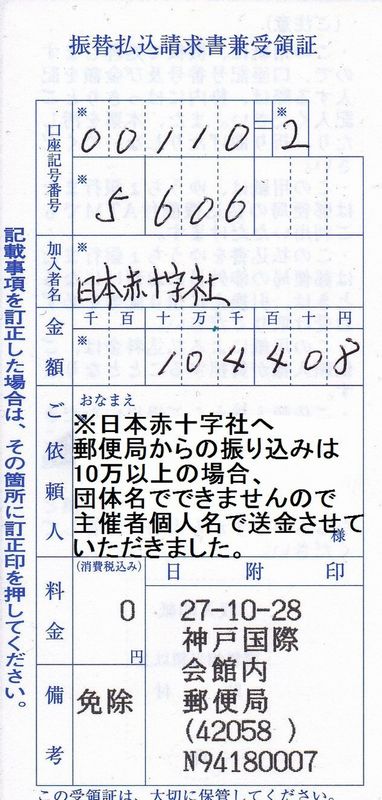 振替払込請求書兼受領証
口座記号番号
※
００１１０
※
２
※
５６０６
加入者名
※
日本赤十字社
金額
千百十万千百十円
※
104408
ご依頼人
おなまえ
※日本赤十字社へ
郵便局からの振り込みは
10万以上の場合、
団体名でできませんので
主催者個人名で送金させて
いただきました。
様
料金
(消費税込み)
0
円
備考
免除
日附印
27-10-28
神戸国際
会館内
郵便局
(42058 )
N94180007
記載事項を訂正した場合は、その箇所に訂正印を押してください。
この受領証は、大切に保管してください。